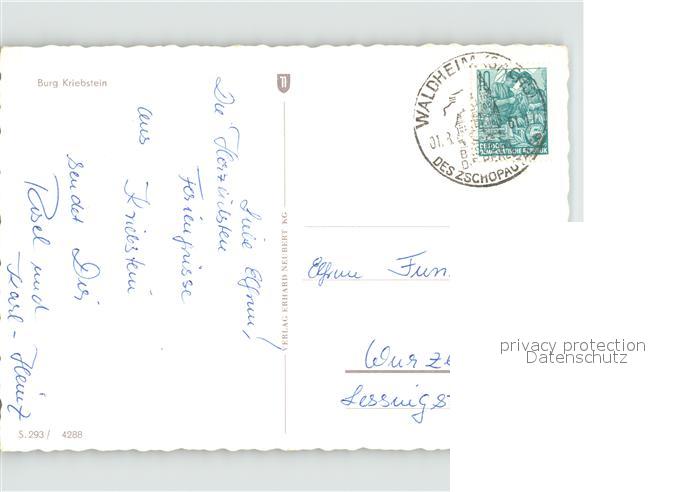 Burg Kriebstein
Liebe Elfrun!
Die Herzlichsten
Feriengrüsse
aus Kriebstein
sendet Dir
Rosel und
Karl-Heinz
VERLAG ERHARD NEUBERT KG
S.293/ 4288
WALDHEIM (SACHS)
01.8.
DES ZSCHOPAU
10
DEUTSCHE DEMOKRATISCHE REPUBLIK
Elfrun Fun
Wurze
Lessingst
privacy protection
Datenschutz